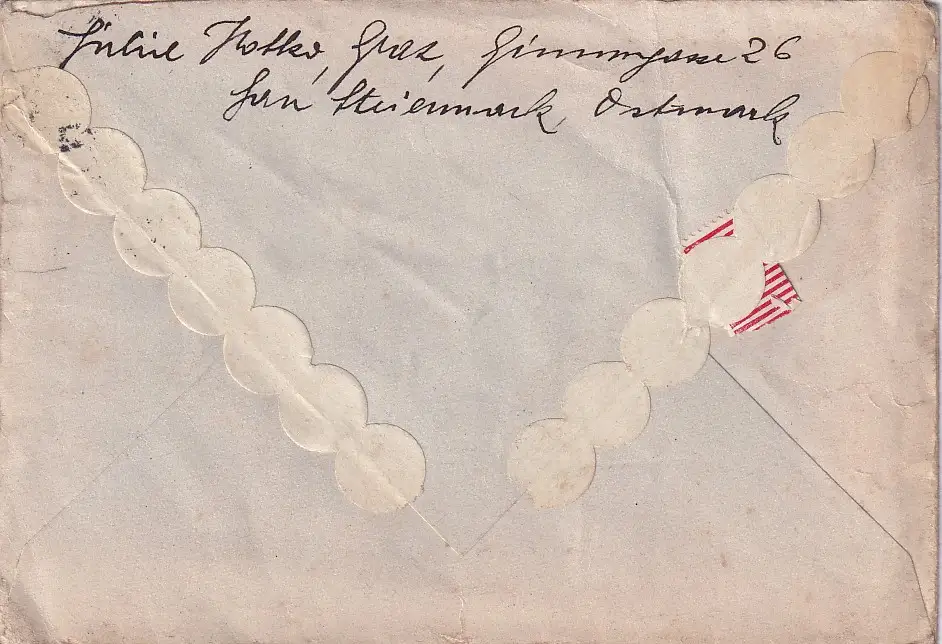 Julie Hotko, Graz, Grimmgasse 26
Gau Steiermark, Ostmark